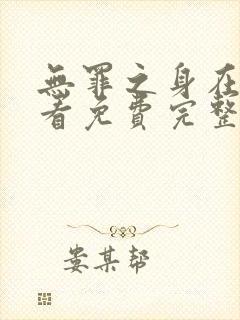 無罪之身在
看免費完整
娄某帮